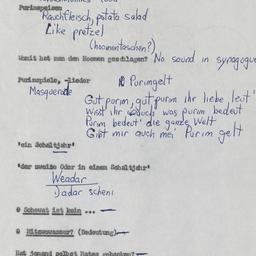 Purimspeisen
Rauchfleisch, potato salad
Like pretzel
(hoomentaschen?)
Womit hat man den Hooman geschlagen? No sound in synagogue
Purimspiele, -lieder Purimgelt
Masquerade
Gut purim, gut purim ihr liebe leut'
Wisst ihr auch was purim bedeut
Purim bedeut' die ganze Welt
Gibt mir auch mei' Purim gelt
"ein Schaltjahr"
"der zweite Oder in einem Schaltjahr"
Weadar
adar scheni
@ Schewat ist kein ... —
@ (Bedeutung) —
Hat jemand selbst Mates gebacken? —